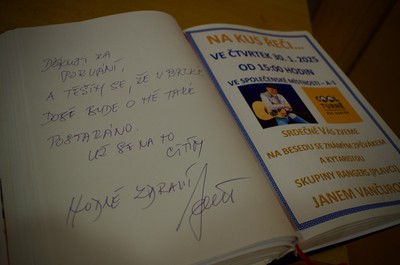 DĚKUJI ZA
POZVÁNÍ,
A TĚŠÍM SE, ŽE V BRZKÉ
DOBĚ BUDE O MĚ TAKÉ
POSTARÁNO.
UŽ SE NA TO
CÍTÍM
HODNĚ ZDRAVÍ
NA KUS ŘEČI...
VE ČTVRTEK 30. 1. 2025
OD 15:00 HODIN
VE SPOLEČENSKÉ MÍSTNOSTI – A-5
TURNÉ
SRDEČNĚ VÁS ZVEME
NA BESEDU SE ZNÁMÝM ZPĚVÁKEM
A KYTARISTOU
SKUPINY RANGERS (PLAVCI)
JANEM VANČURO